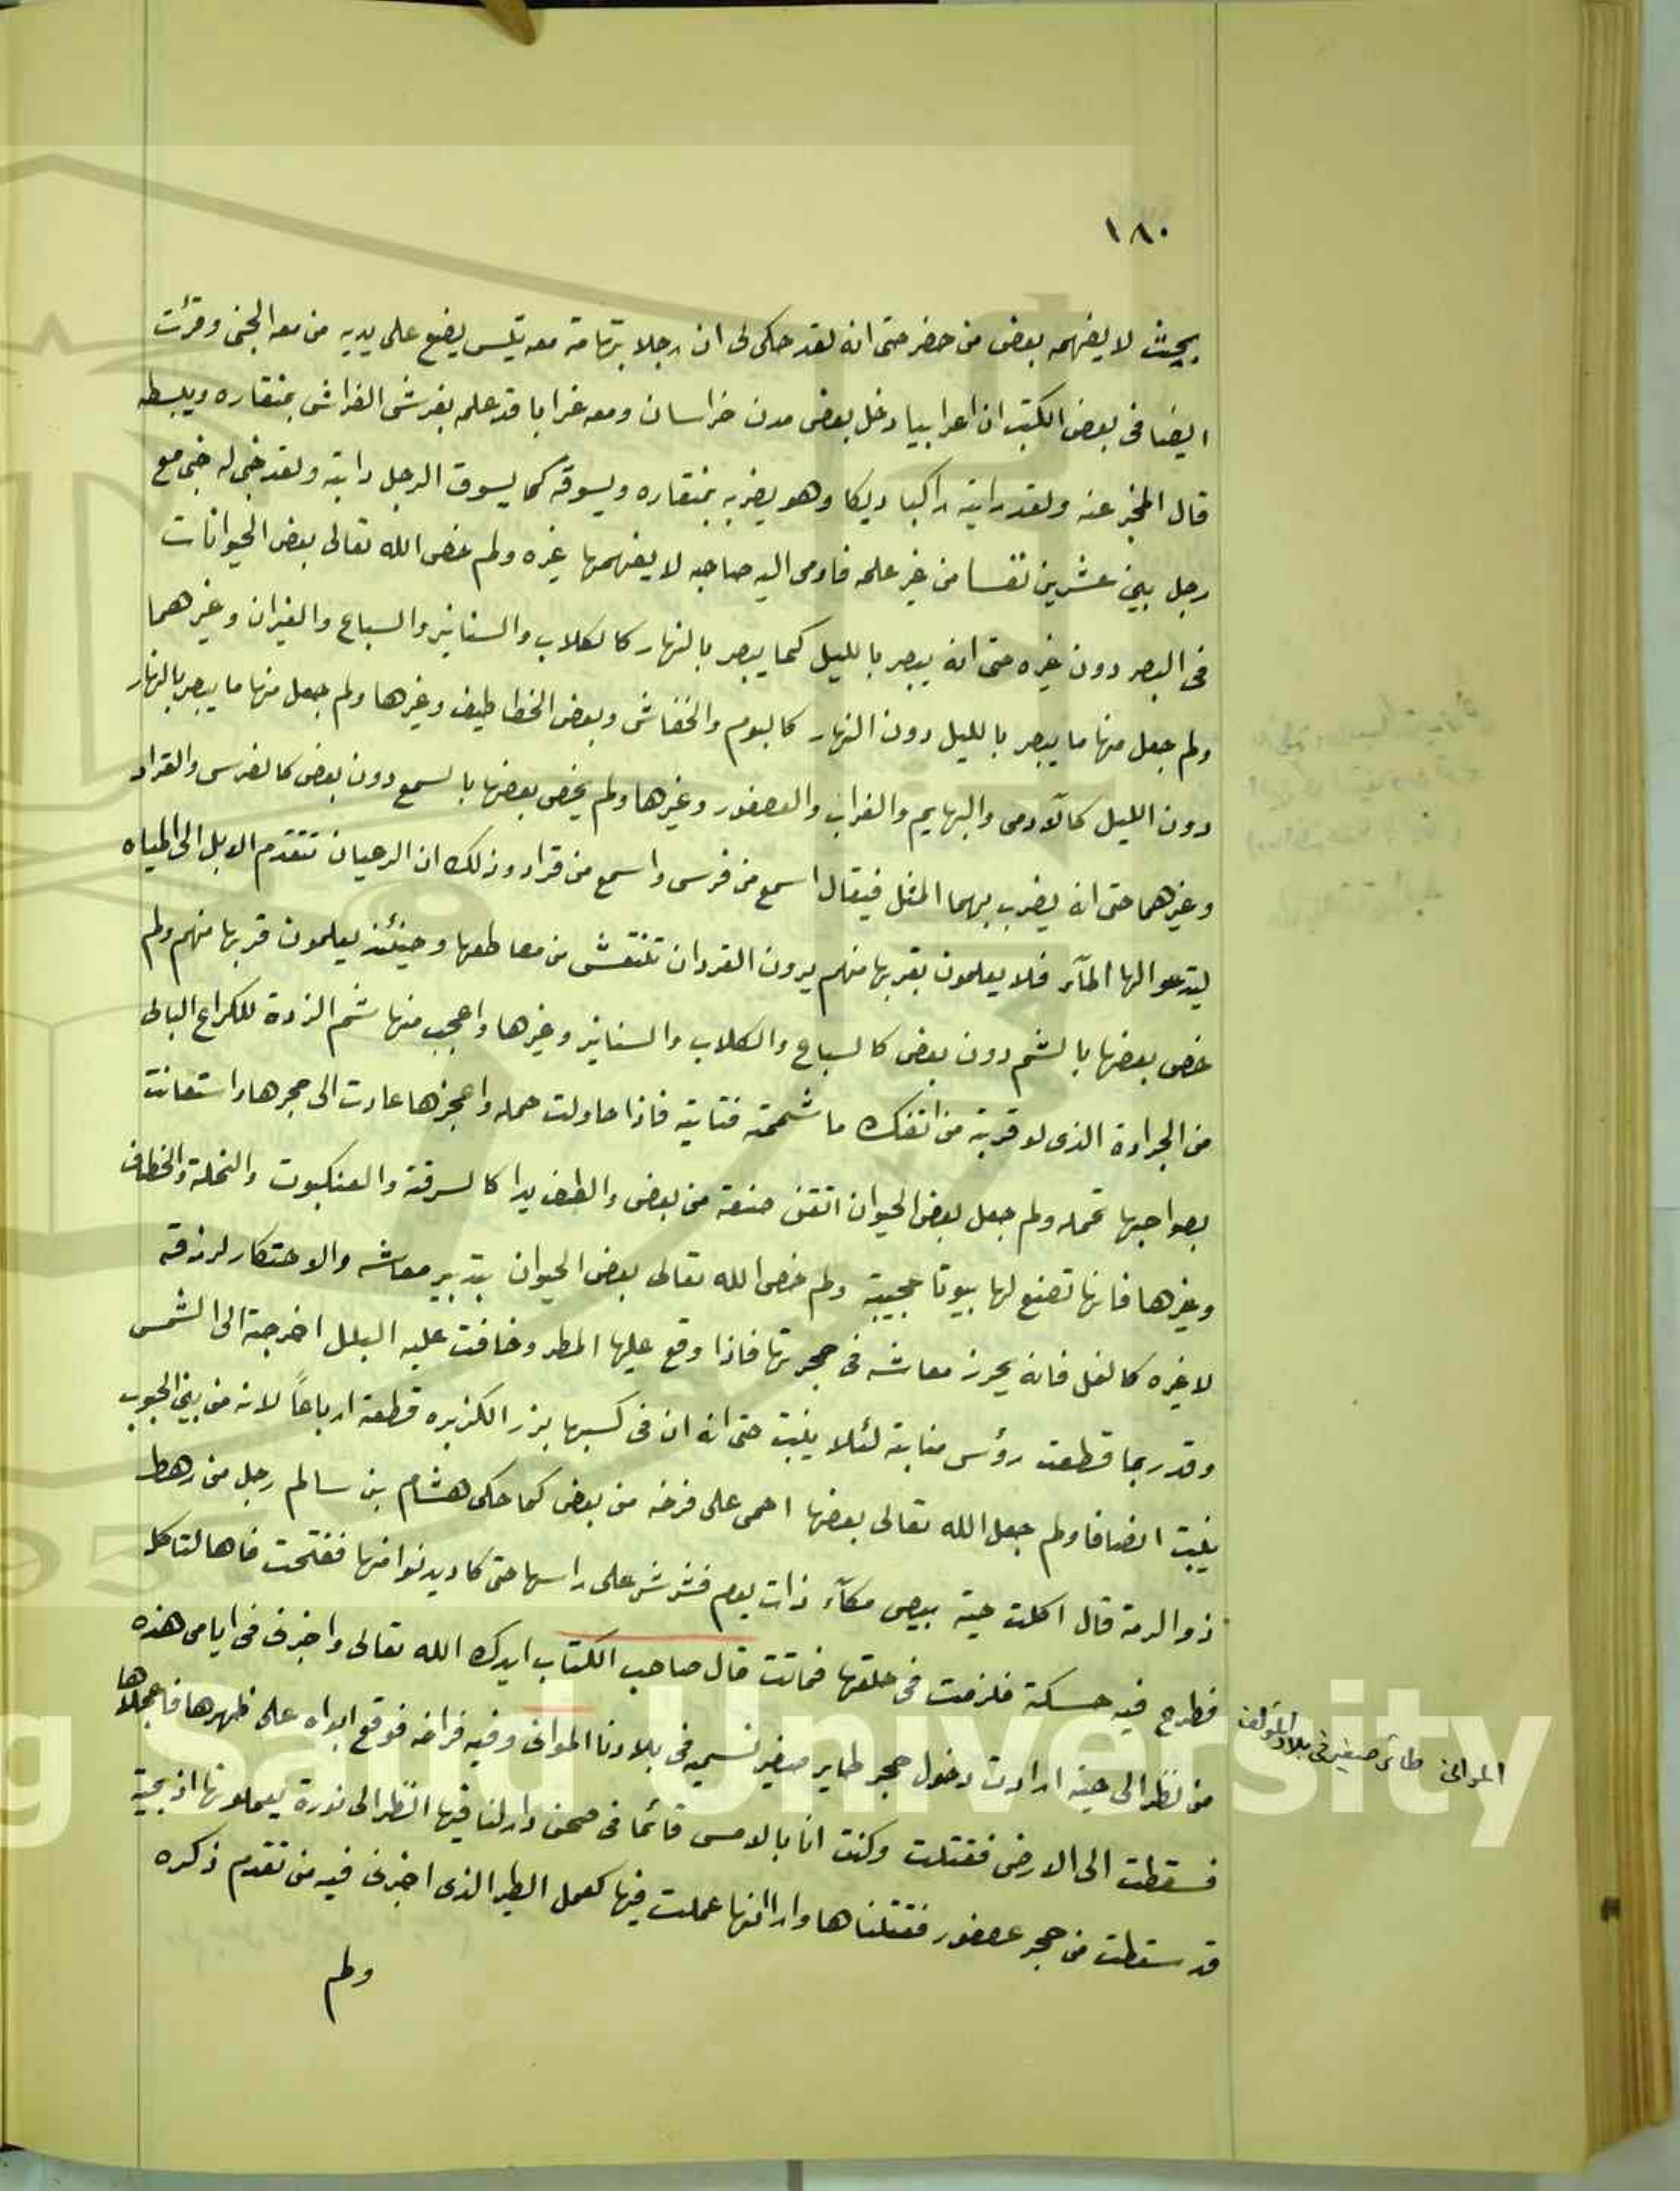 ١٨٠
بحيث لا يفهمه بعض من حضر حتى انه لقد حكى لى ان رجلا بتهامة معه تيس يضع على يديه من معه الجنى وقرئت
ايضا فى بعض الكتب ان اعرابيا دخل بعض مدن خراسان ومعه غرابا قد علمه بفرش الفراش بمنقاره ويبسطه
قال المخبر عنه ولقد رايته راكبا ديكا وهو يضربه بمنقاره ويسوقه كما يسوق الرجل دابته ولقد خبى له خبى مع
رجل بين عشرين نفسا من غير علمه فاومى اليه صاحبه لا يفهمها غيره ولم خص الله تعالى بعض الحيوانات
فى البصر دون غيره حتى انه يبصر بالليل كما يبصر بالنهار كالكلاب والسنانير والسباع والفيران وغيرهما
ولم جعل منها ما يبصر بالليل دون النهار كالبوم والخفاش وبعض الخطاطيف وغيرها ولم جعل منها ما يبصر بالنهار
دون الليل كالآدمى والبهايم والغراب والعصفور وغيرها ولم يخص بعضها بالسمع دون بعض كالفرس والقراد
وغيرهما حتى انه يضرب بهما المثل فيقال اسمع من فرس واسمع من قراد وذلك ان الرعيان تتقدم الابل الى المياه
ليدعوا لها المآء فلا يعلمون بقربها منهم يرون القردان تنتعش من معاطعها وحينئذ يعلمون قربها منهم ولم
خص بعضها بالشم دون بعض كالسباع والكلاب والسنانير وغيرها واعجب منها شم الذرة للكراع البالى
من الجرادة الذى لو قربته من انفك ما شممته فتاتيه فاذا حاولت حمله واعجزها عادت الى حجرها واستعانت
بصواحبها تحمله ولم جعل بعض الحيوان اتقن صنعة من بعض والطف يدا كالسرفة والعنكبوت والنحلة والخطاف
وغيرها فانها تصنع لها بيوتا عجيبة ولم خص الله تعالى بعض الحيوان بتدبير معاشه والاحتكار لرزقه
لا غيره كالنمل فانه يحرز معاشه فى حجرتها فاذا وقع عليها المطر وخافت عليه البلل اخرجته الى الشمس
وقد ربما قطعت رؤس منابته لئلا ينبت حتى انه ان فى كسبها بزر الكزبره قطعته ارباعاً لانه من بين الحبوب
ينبت انصافا ولم جعل الله تعالى بعضها احمى على فرخه من بعض كما حكى هشام بن سالم رجل من رهط
ذو الرمة قال اكلت حية بيض مكآء ذات يوم فشرشر على راسها حتى كاد يدنوا منها ففتحت فاها لتاكل
فطرح فيه حسكة فلزمت فى حلقها فماتت قال صاحب الكتاب ايدك الله تعالى واخبرنى فى ايامى هذه
من نظر الى حية ارادت دخول حجر طاير صغير نسميه فى بلادنا الموانى وفيه فراخه فوقع ابواه على ظهرها فاعجلاها
فسقطت الى الارض فقتلت وكنت انا بالامس قائما فى صحن دار لنا فيها انظر الى نورة يعملونها اذ بحية
قد سقطت من حجر عصفور فقتلناها وارا انها عملت فيها كعمل الطير الذى اخبرنى فيه من تقدم ذكره
ولم
الموانى طائر صغير فى بلاد المؤلف
King Saud University